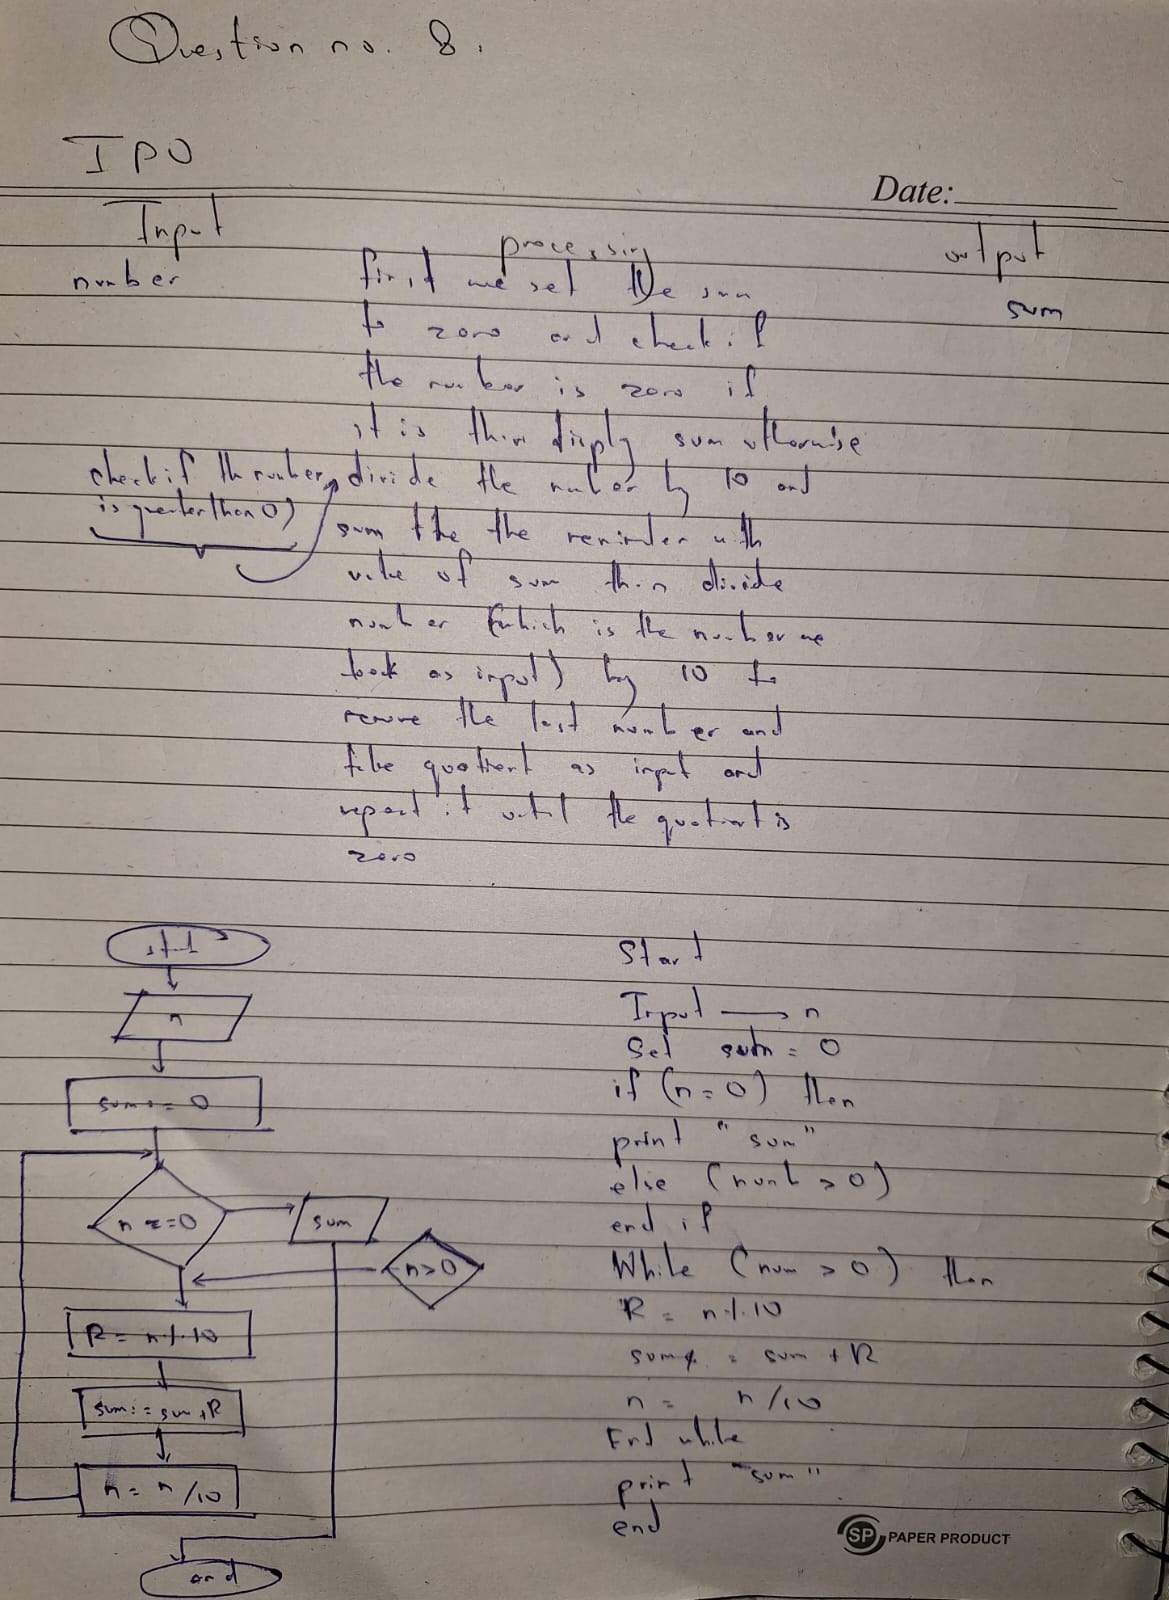 Question no. 8.
IPO
Date:
Input
processing
output
number
first we set the sum
sum
to zero and check if
the number is zero if
it is then disply sum otherwise
check if th number
is greater than 0)
divide the number by 10 and
sum the the reminder with
value of sum then divide
number (which is the number we
took as input) by 10 to
remove the last number and
take quotient as input and
repeat it until the quotient is
zero
start
n
sum := 0
n == 0
sum
n>0
R = n % 10
sum := sum + R
n = n /10
end
Start
Input → n
Set sum = 0
if (n = 0) then
print "sum"
else (num > 0)
end if
While (num > 0) then
R = n % 10
sum = sum + R
n = n /10
End while
print "sum"
end
SP PAPER PRODUCT